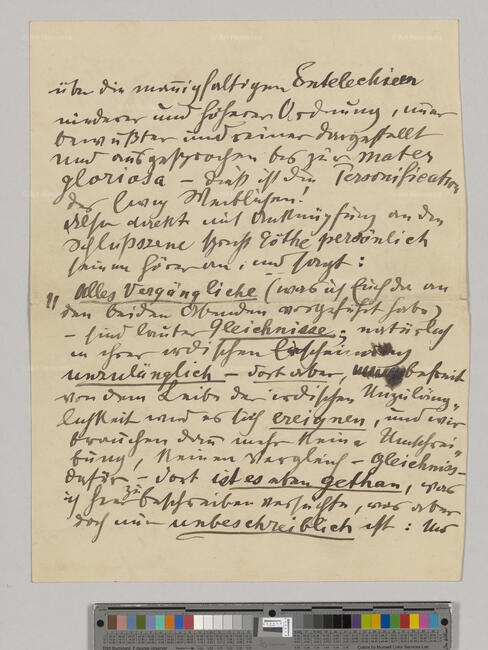 über die mannigfaltigen Entelechieen
niederer und höherer Ordnung, immer
bewußter und reiner dargestellt
und ausgesprochen bis zur Mater
gloriosa – dieß ist die Personification
des Ewig Weiblichen!
Also direkt mit Anknüpfung an die
Schlußszene spricht Göthe persönlich
seinen Hörer an, und sagt:
"Alles Vergängliche (was ich Euch da an
den beiden Abenden vorgeführt habe)
– sind lauter Gleichnisse, natürlich
in ihrer irdischen Erscheinung
unzulänglich – dort aber, befreit
von dem Leibe der irdischen Unzuläng„
lichkeit wird es sich ereignen, und wir
brauchen dann mehr keine Umschrei„
bung, keinen Vergleich – Gleichniss–
dafür – dort ist es eben gethan, was
ich hier zu beschreiben versuchte, was aber
doch nur unbeschreiblich ist: